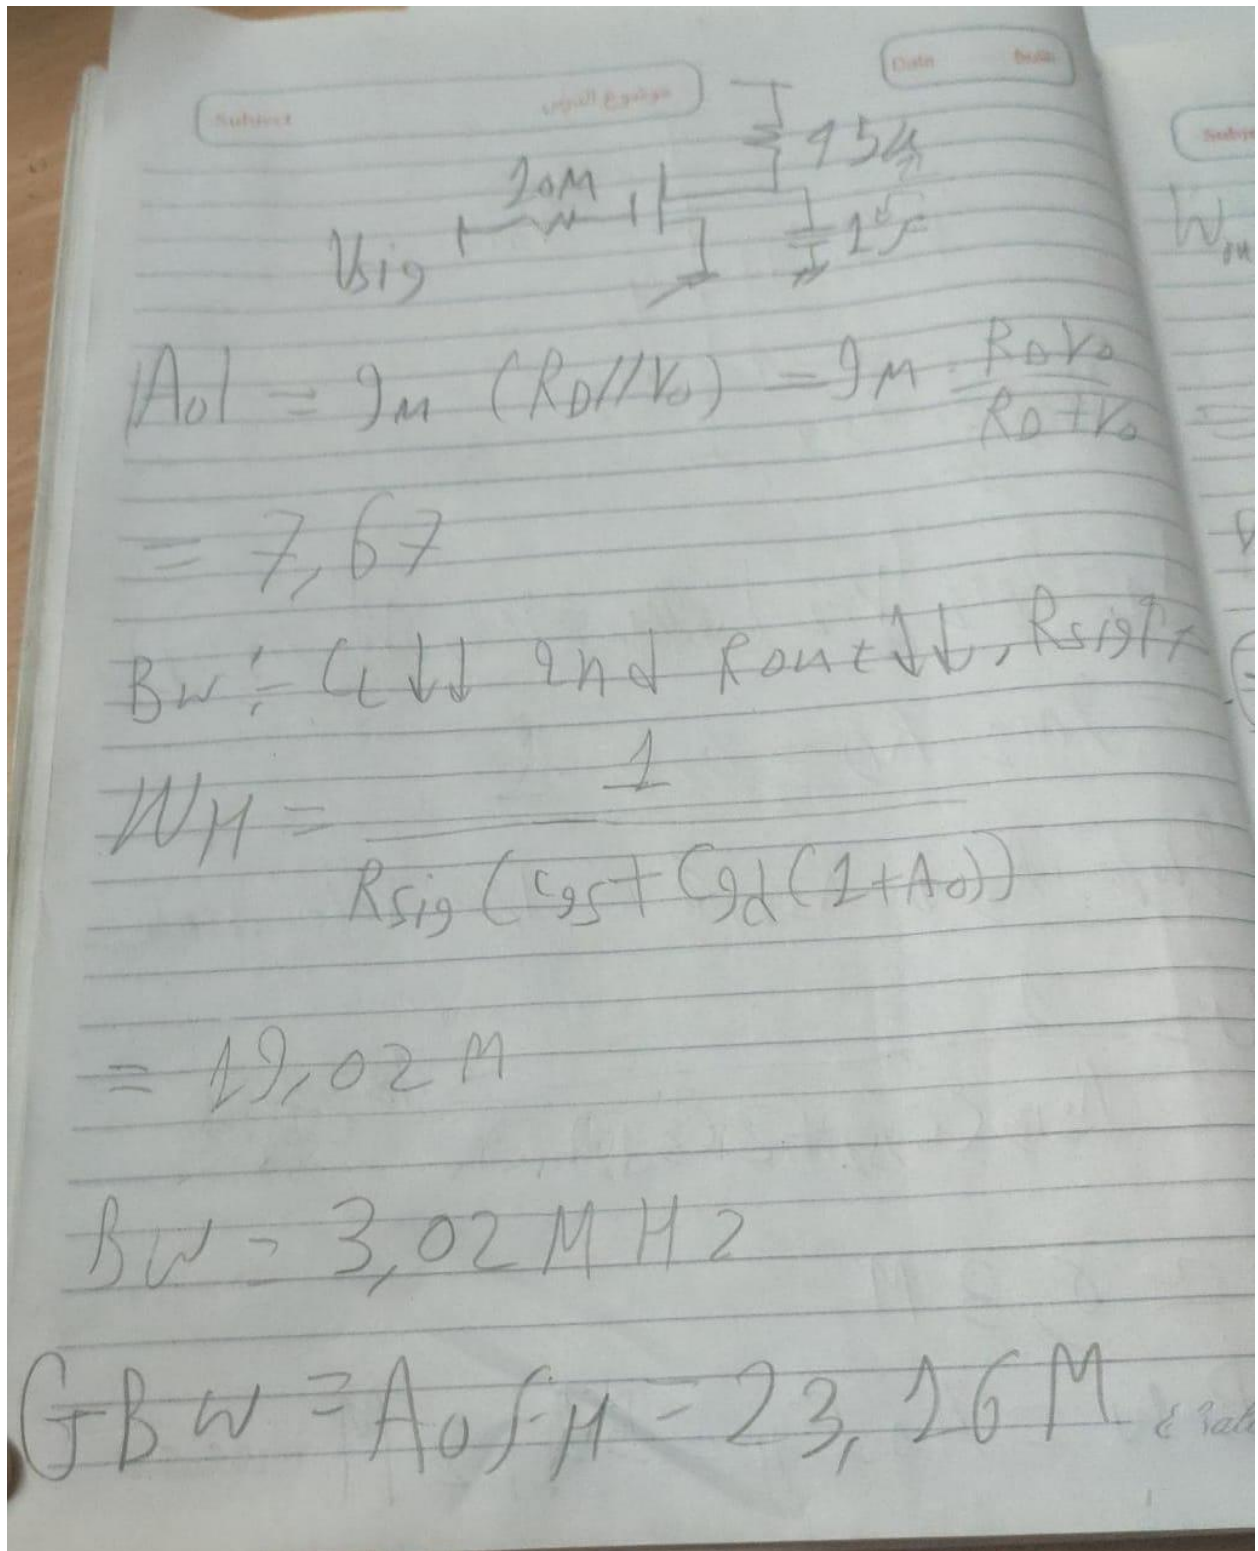 Subject موضوع الدرس
Date
20M
Vsig
|A0| = gm (RD//ro) = gm = RD ro / RD + ro
= 7,67
BW : CL ↓↓ and Rout ↓↓, Rsig ↑
WH = 1 / Rsig (cgs + Cgd (1 + A0))
= 19,02 M
BW = 3,02 M Hz
GBW = A0 fH = 23,16 M